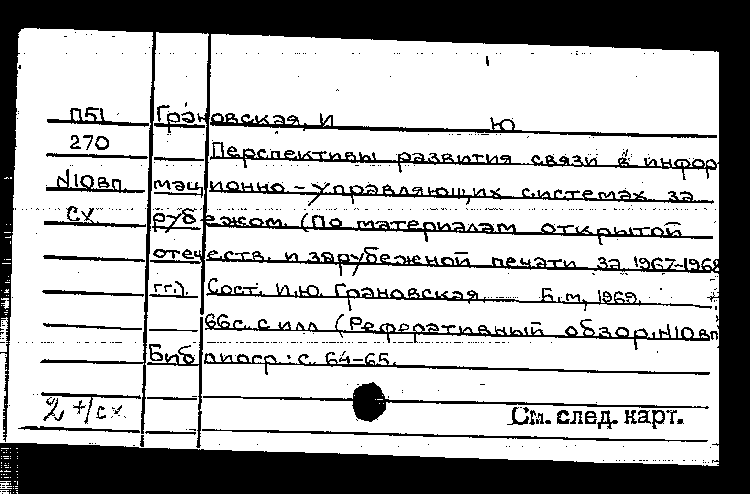 П51 Грановская, И Ю
270 Перспективы развития связи в инфор
N10вп. мационно-управляющих системах за
сх. рубежом. (По материалам открытой
отечеств. и зарубежной печати за 1967-1968
гг.). Сост. И.Ю. Грановская. — Б.м, 1969.
66с. с илл (Реферативный обзор. N10вп
Библиогр: с. 64-65.
2 +/сх См. след. карт.